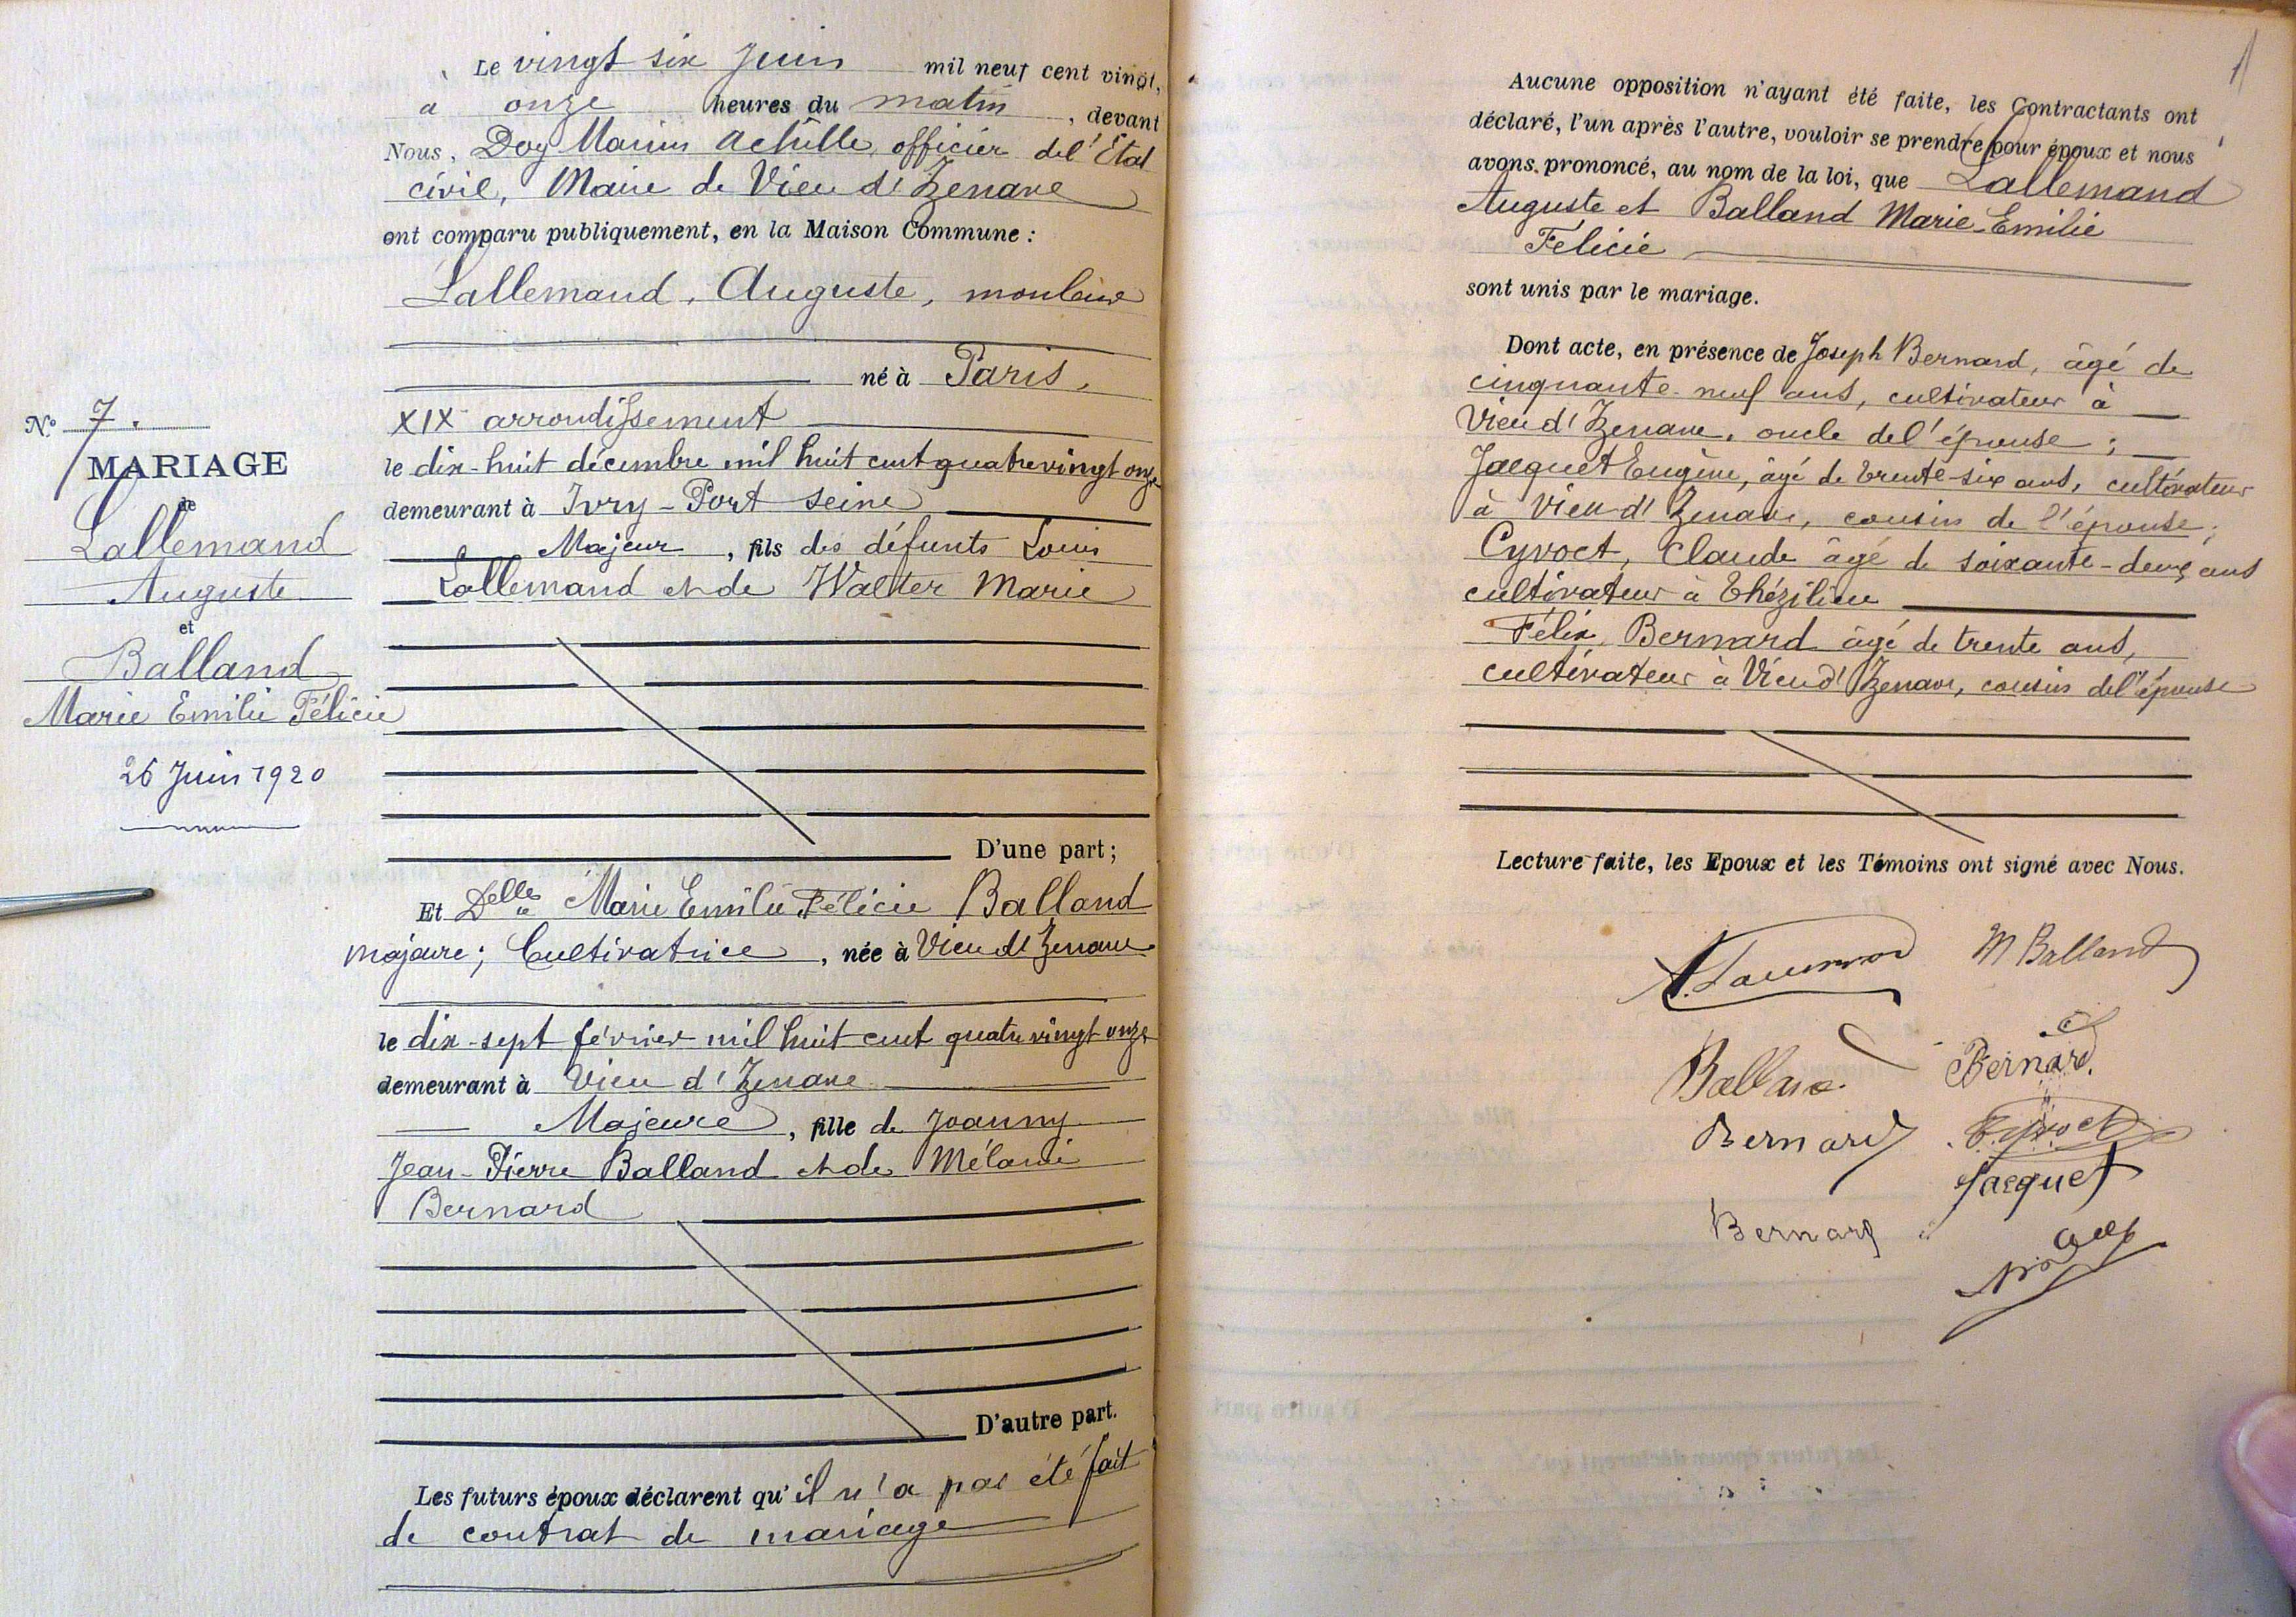 Le vingt six Juin mil neuf cent vingt,
à onze heures du matin, devant
Nous, Doy Marius Achille, officier de l'État
civil, Maire de Vieu d'Izenave
ont comparu publiquement, en la Maison Commune :
Lallemand, Auguste, mouleur
né à Paris,
XIXe arrondissement
le dix-huit décembre mil huit cent quatre vingt onze
demeurant à Ivry-Port Seine
Majeur, fils des défunts Louis
Lallemand et de Walter Marie
D'une part ;
Et Delle Marie Emilie Félicie Balland
majeure; Cultivatrice, née à Vieu d'Izenave
le dix-sept février mil huit cent quatre vingt onze
demeurant à Vieu d'Izenave
Majeure, fille de Joanny
Jean-Pierre Balland et de Mélanie
Bernard
D'autre part.
Les futurs époux déclarent qu'il n'a pas été fait
de contrat de mariage
N.º 7.
MARIAGE
de
Lallemand
Auguste
et
Balland
Marie Emilie Félicie
26 Juin 1920
Aucune opposition n'ayant été faite, les Contractants ont
déclaré, l'un après l'autre, vouloir se prendre pour époux et nous
avons prononcé, au nom de la loi, que Lallemand
Auguste et Balland Marie-Emilie
Felicie
sont unis par le mariage.
Dont acte, en présence de Joseph Bernard, âgé de
cinquante-neuf ans, cultivateur à
Vieu d'Izenave, oncle de l'épouse ;
Jacquet Eugène, âgé de trente-six ans, cultivateur
à Vieu d'Izenave, cousin de l'épouse ;
Cyvoct, Claude âgé de soixante-deux ans
cultivateur à Thézilieu
Félix, Bernard âgé de trente ans,
cultivateur à Vieu d'Izenave, cousin de l'épouse
Lecture faite, les Epoux et les Témoins ont signé avec Nous.
M Balland
Balland
Bernard
Bernard
Cyvoct
Jacquet
Bernard